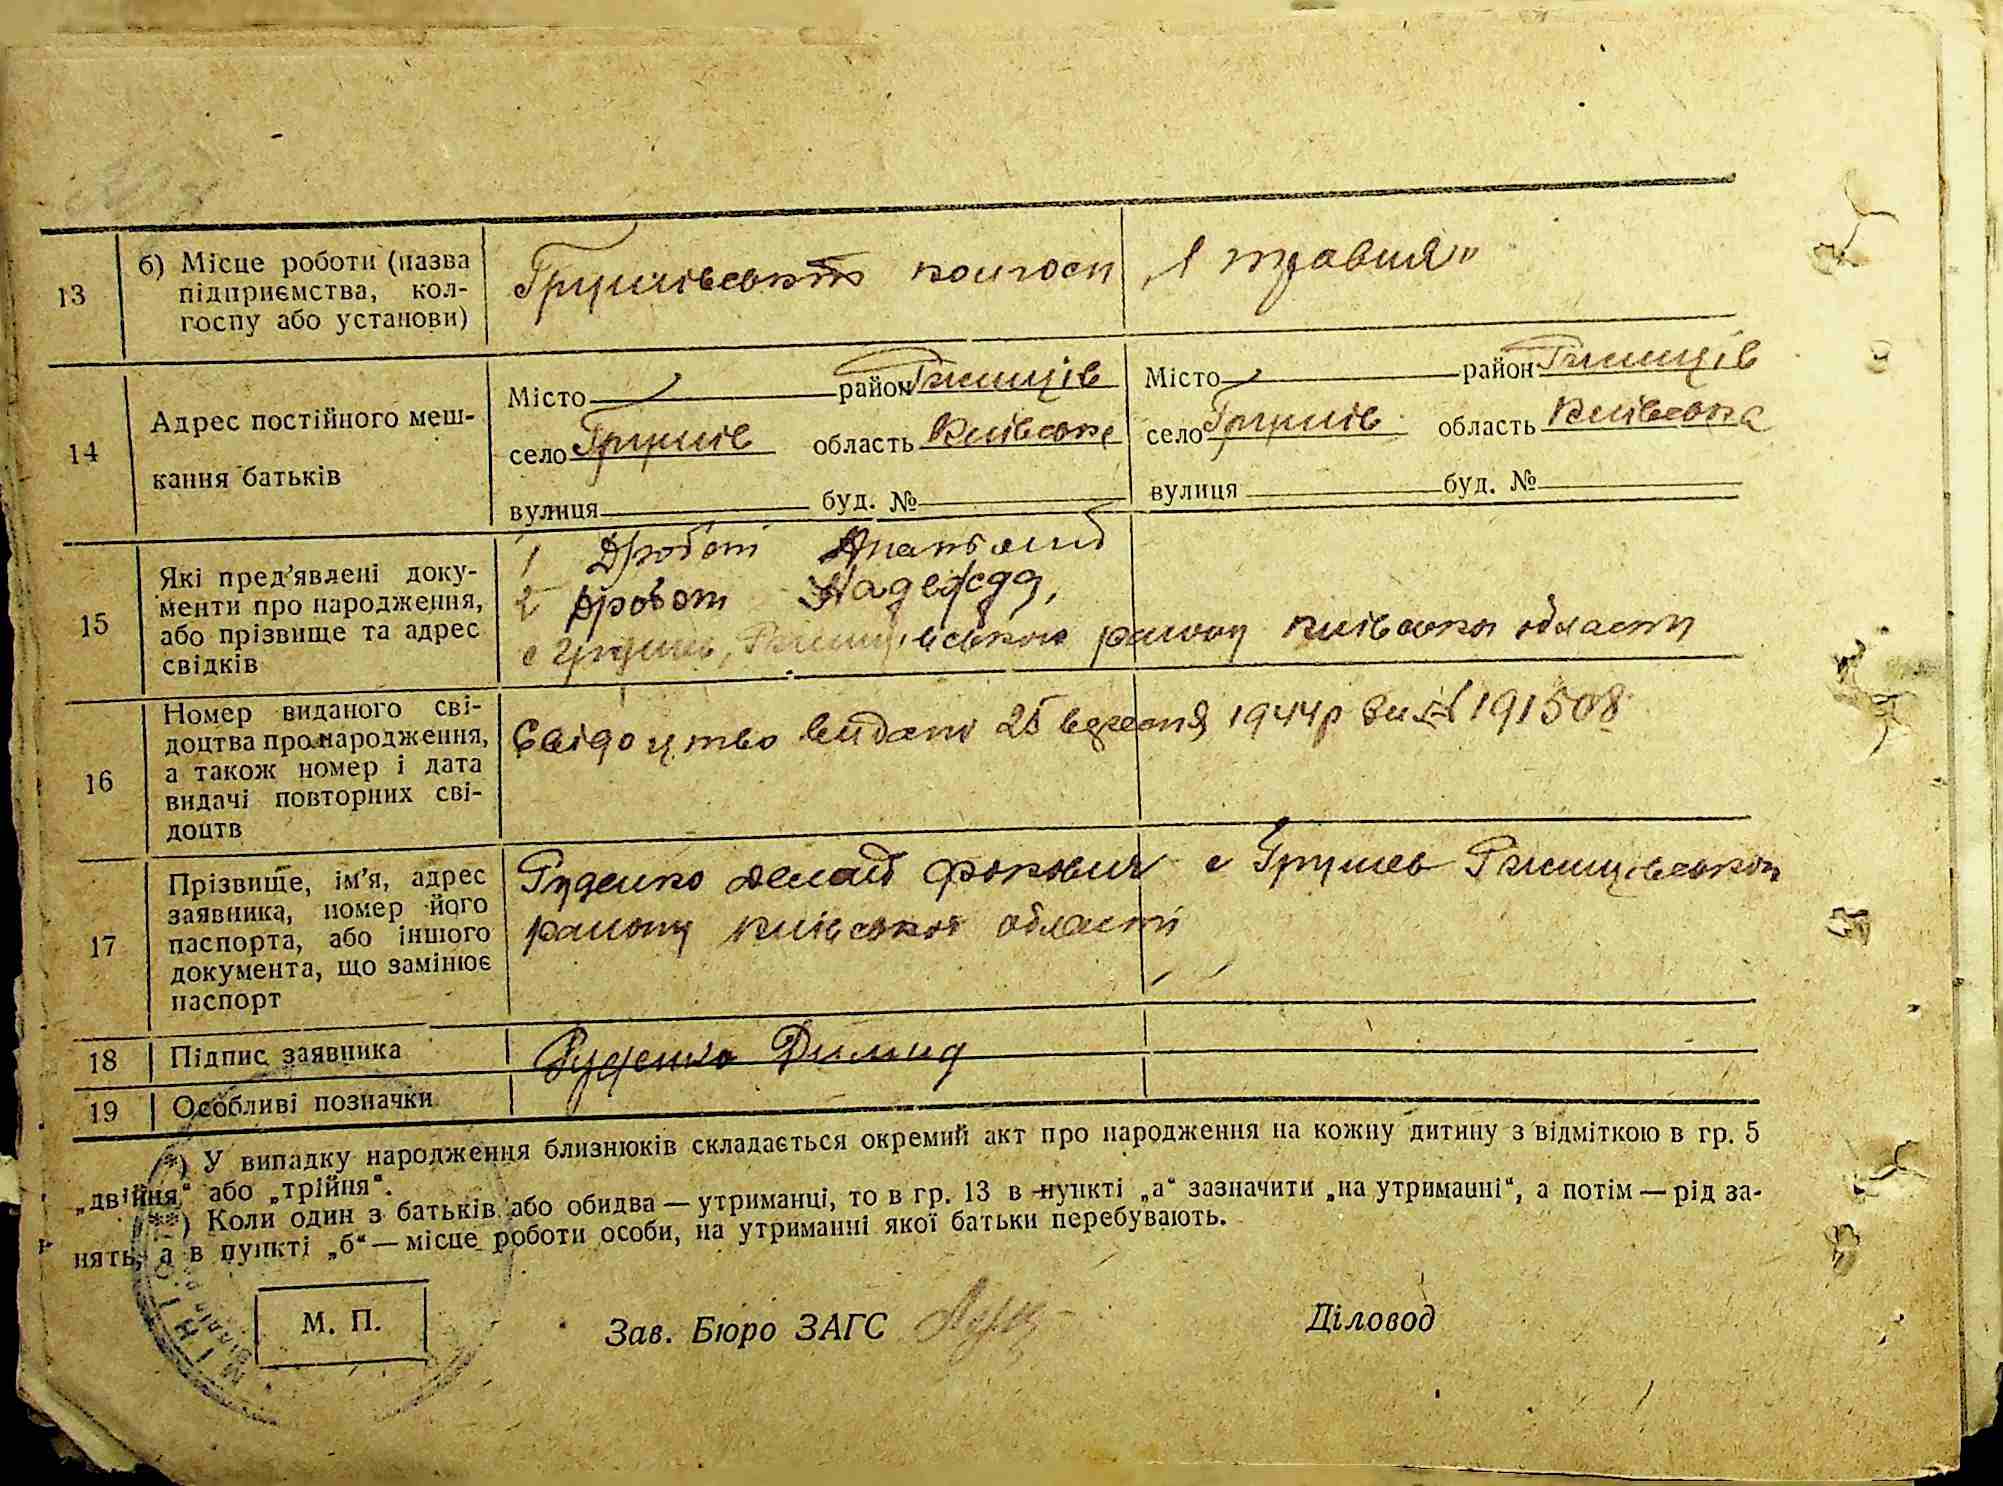 13
б) Місце роботи (назва
підприємства, кол-
госпу або установи)
Грушівський колгосп „1 травня“
14
Адрес постійного меш-
кання батьків
Місто район Ржищів
село Грушів область Київська
вулиця буд. №
Місто район Ржищів
село Грушів область Київська
вулиця буд. №
15
Які пред'явлені доку-
менти про народження,
або прізвище та адрес
свідків
1 Дробот
2 Дробот Надежда,
с Грушів, Ржищівського району київської області
16
Номер виданого сві-
доцтва про народження,
а також номер і дата
видачі повторних сві-
доцтв
Свідоцтво видано 25 вересня 1944р за № 191508
17
Прізвище, ім'я, адрес
заявника, номер його
паспорта, або іншого
документа, що замінює
паспорт
Руденко Демид Фокович с Грушев Ржищівського
району київської області
18
Підпис заявника
Руденко Димид
19
Особливі позначки
*) У випадку народження близнюків складається окремий акт про народження на кожну дитину з відміткою в гр. 5
„двійня“ або „трійня“.
**) Коли один з батьків або обидва — утриманці, то в гр. 13 в пункті „а“ зазначити „на утриманні“, а потім — рід за-
нять, а в пункті „б“ — місце роботи особи, на утриманні якої батьки перебувають.
М. П.
Зав. Бюро ЗАГС
Діловод